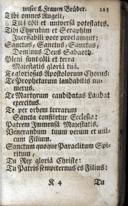 unser L. Frauen Brüder. 223
Tibi omnes Angeli,
Tibi cöli et universä potestates,
Tibi Cherubim et Seraphim
Sanctus, Sanctus, Sanctus,
Dominus Deus Sabaoth.
Pleni sunt cöli et terra
Majestatis gloriä tuä,
Te gloriosus Apostolorum Chorus:
Te Prophetarum laudabilis numerus,
Te Martyrum candidatus laudat exercitus.
Te per orbem terrarum
Sancta confitetur Ecclesia:
Patrem Immensä Majestatis,
Venerandum tuum verum et unicum Filium.
Sanctum quoque Paraclitum Spiritum,
Tu Rex gloriä Christe:
Tu Patris sempiternus es Filius:
K 4 Tu